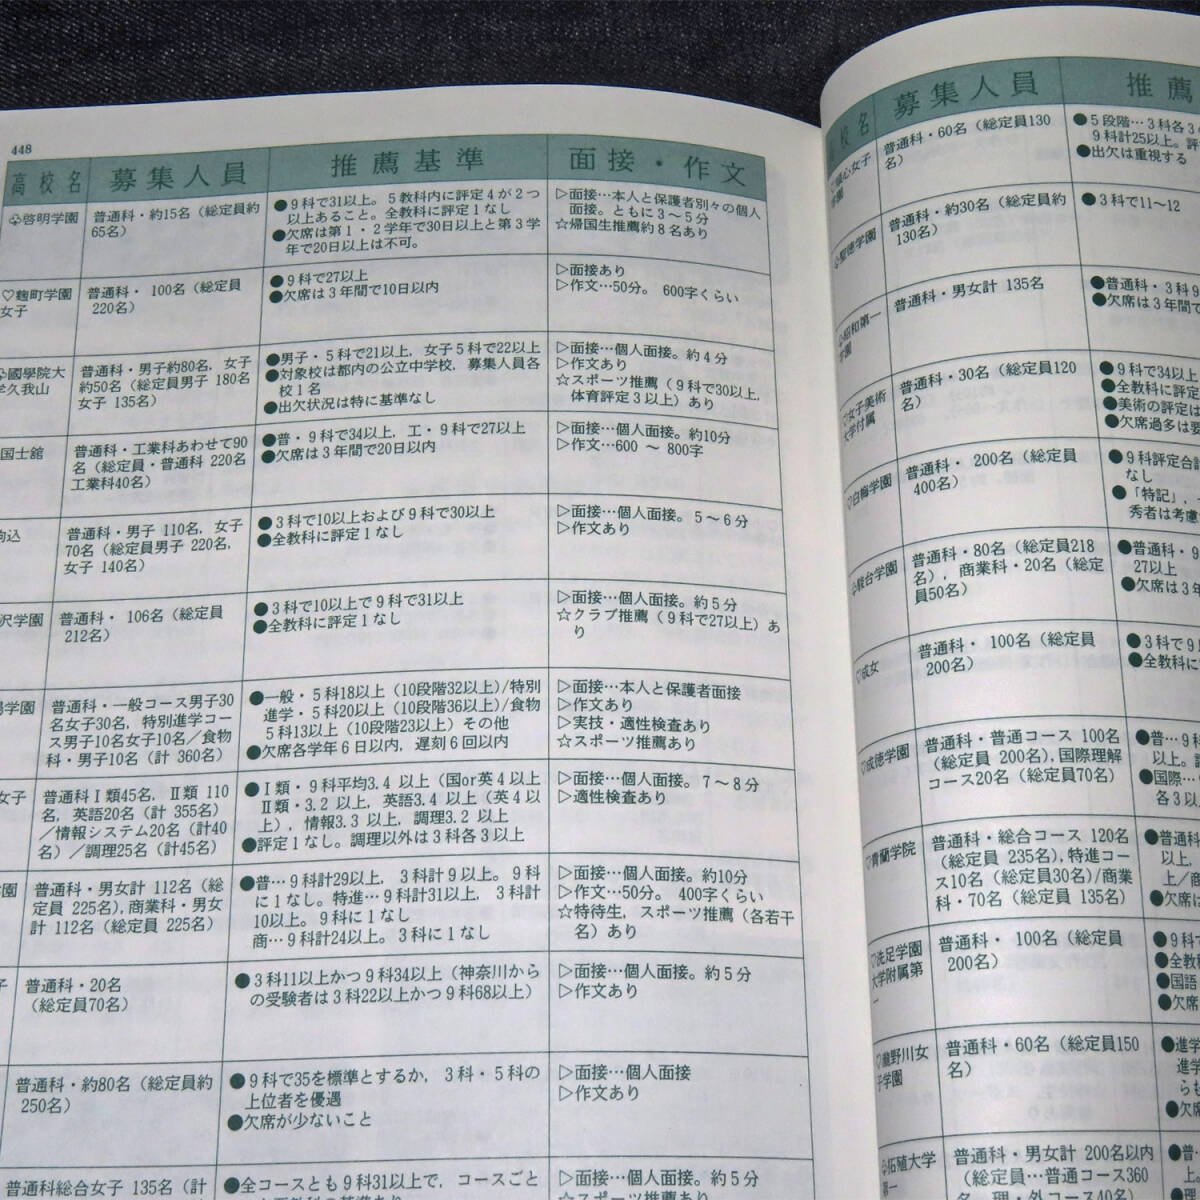 448
高校名
募集人員
推薦基準
面接・作文
啓明学園
普通科・約15名（総定員約
65名）
●9科で31以上。5教科内に評定4が2つ
以上あること。全教科に評定1なし
●欠席は第1・2学年で30日以上と第3学
年で20日以上は不可。
▷面接…本人と保護者別々の個人
面接。ともに3～5分
☆帰国生推薦約8名あり
♡麴町学園
女子
普通科・100名（総定員
220名）
●9科で27以上
●欠席は3年間で10日以内
▷面接あり
▷作文…50分。600字くらい
國學院大
学久我山
普通科・男子約80名，女子
約50名（総定員男子 180名
女子 135名）
●男子・5科で21以上，女子5科で22以上
●対象校は都内の公立中学校，募集人員各
校1名
●出欠状況は特に基準なし
▷面接…個人面接。約4分
▷作文あり
☆スポーツ推薦（9科で30以上，
体育評定3以上）あり
国士館
普通科・工業科あわせて90
名（総定員・普通科 220名
工業科40名）
●普・9科で34以上，工・9科で27以上
●欠席は3年間で20日以内
▷面接…個人面接。約10分
▷作文…600 ～ 800字
込
普通科・男子 110名，女子
70名（総定員男子 220名，
女子 140名）
●3科で10以上および9科で30以上
●全教科に評定1なし
▷面接…個人面接。5～6分
▷作文あり
沢学園
普通科・106名（総定員
212名）
●3科で10以上で9科で31以上
●全教科に評定1なし
▷面接…個人面接。約5分
☆クラブ推薦（9科で27以上）あ
り
学園
普通科・一般コース男子30
名女子30名，特別進学コー
ス男子10名女子10名／食物
科・男子10名（計 360名）
●一般・5科18以上（10段階32以上）/特別
進学・5科20以上（10段階36以上）/食物
5科13以上（10段階23以上）その他
●欠席各学年6日以内，遅刻6回以内
▷面接…本人と保護者面接
▷作文あり
▷実技・適性検査あり
☆スポーツ推薦あり
女子
普通科Ⅰ類45名，Ⅱ類 110
名，英語20名（計 355名）
／情報システム20名（計40
名）／調理25名（計45名）
●Ⅰ類・9科平均3.4 以上（国or英4以上
Ⅱ類・3.2 以上，英語3.4 以上（英4以
上），情報3.3 以上，調理3.2 以上
●評定1なし。調理以外は3科各3以上
▷面接…個人面接。7～8分
▷適性検査あり
学園
普通科・男女計 112名（総
定員 225名），商業科・男女
計 112名（総定員 225名）
●普…9科計29以上，3科計9以上。9科
に1なし。特進…9科計31以上，3科計
10以上。9科に1なし
商…9科計24以上。3科に1なし
▷面接…個人面接。約10分
▷作文…50分。400字くらい
☆特待生，スポーツ推薦（各若干
名）あり
子
普通科・20名
（総定員70名）
●3科11以上かつ9科34以上（神奈川から
の受験者は3科22以上かつ9科68以上）
▷面接…個人面接。約5分
▷作文あり
普通科・約80名（総定員約
250名）
●9科で35を標準とするか，3科・5科の
上位者を優遇
●欠席が少ないこと
▷面接…個人面接
▷作文あり
普通科総合女子 135名（計
●全コースとも9科31以上で，コースごと
▷面接…個人面接。約5分
☆スポーツ推薦あり
高校名
募集人員
推薦
心女子
学園
普通科・60名（総定員130
名）
●5段階…3科各3
9科計25以上。評
●出欠は重視する
聖徳学園
普通科・約30名（総定員約
130名）
●3科で11～12
昭和第一
学園
普通科・男女計 135名
●普通科・3科9
●欠席は3年間で
♡女子美術
大学付属
普通科・30名（総定員120
名）
●9科で34以上
●全教科に評定
●美術の評定は
●欠席過多は要
♡白梅学園
普通科・200名（総定員
400名）
●9科評定合計
なし
●「特記」，
秀者は考慮
駿台学園
普通科・80名（総定員218
名），商業科・20名（総定
員50名）
●普通科・9
27以上
●欠席は3年
♡成女
普通科・100名（総定員
200名）
●3科で9以
●全教科に
♡成徳学園
普通科・普通コース 100名
（総定員 200名），国際理解
コース20名（総定員70名）
●普…9科
以上。
●国際…
各3以
♡青蘭学院
普通科・総合コース 120名
（総定員 235名），特進コー
ス10名（総定員30名）/商業
科・70名（総定員 135名）
●普通科
以上，
上／商
●欠席は
♡洗足学園
大学附属第
一
普通科・100名（総定員
200名）
●9科で
●全教科
●国語
●欠席
♡瀧野川女
子学園
普通科・60名（総定員150
名）
●進学
進学
らも
●欠席
拓殖大学
第一
普通科・男女計 200名以内
（総定員…普通コース360
●普…
上